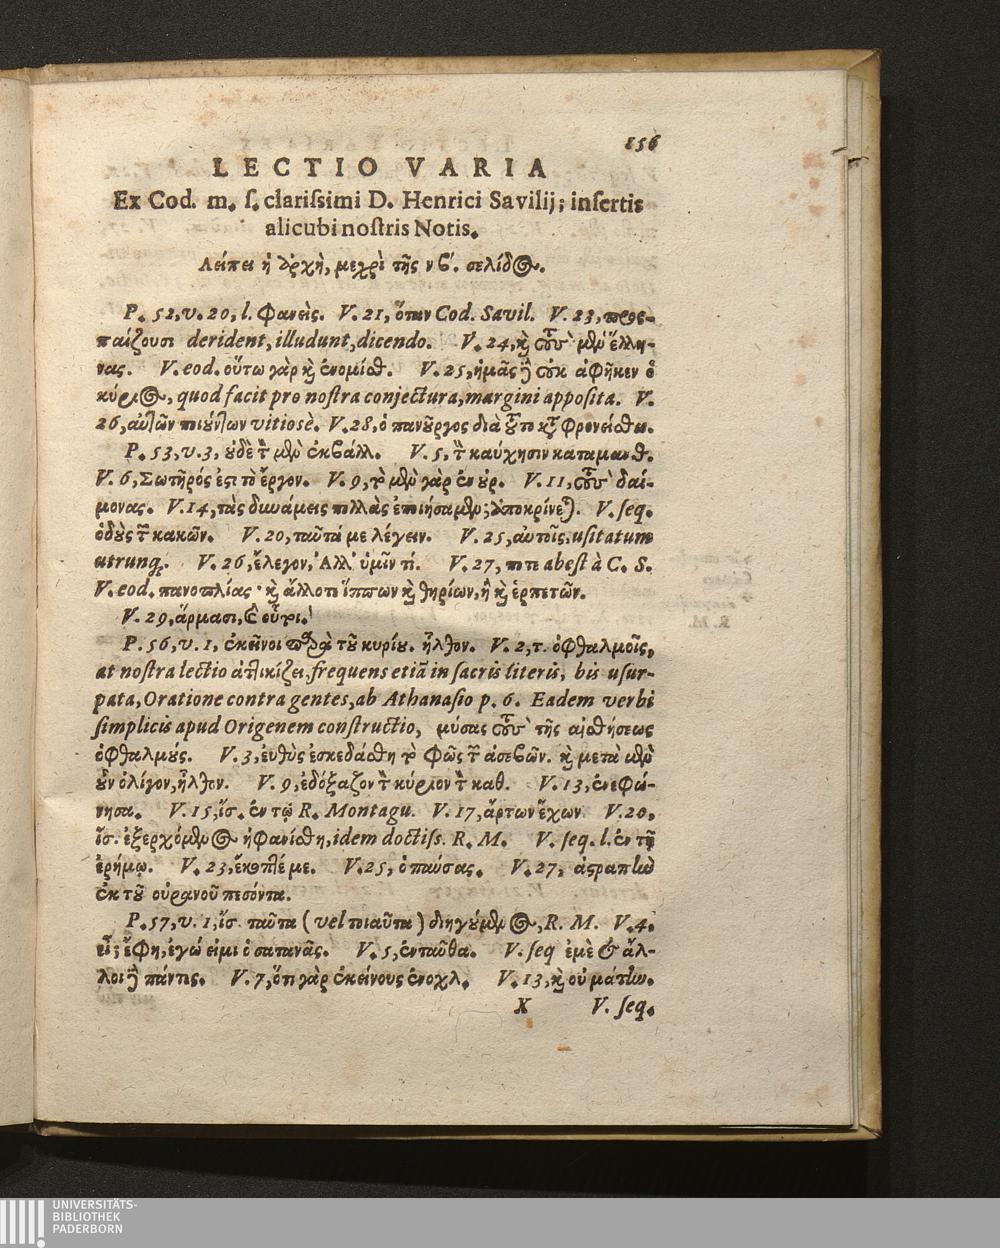 156
LECTIO VARIA
Ex Cod. m. ſ. clariſsimi D. Henrici Savilij; inſertis
alicubi noſtris Notis.
Λείπει ἡ ἀρχὴ, μεχρὶ τῆς νβ΄. σελίδος.
P. 52, v. 20, l. Φανεὶς. V. 21, ὅταν Cod. Savil. V. 23, προς-
παίζουσι derident, illudunt, dicendo. V. 24, καὶ τοὺς μὲν ἕλλη-
νας. V. eod. οὕτω γὰρ καὶ ἐνομίσθ. V. 25, ἡμᾶς δὲ οὐκ ἀφῆκεν ὁ
κύριος, quod facit pro noſtra conjectura, margini appoſita. V.
26, αὐτῶν ποιούντων vitiosè. V. 28, ὁ πανοῦργος διὰ τοῦτο Φρονείσθω.
P. 53, v. 3, οὐδὲ τὸν μὲν ἐκβάλλ. V. 5, τὴν καύχησιν καταμανθ.
V. 6, Σωτῆρός ἐστι τὸ ἔργον. V. 9, τὸ μὲν γὰρ ἐν οὐρ. V. 11, τοὺς δαί-
μονας. V. 14, τὰς δυνάμεις πολλὰς ἐποιήσαμεν; ἀποκρίνεται. V. ſeq.
ὁδοὺς τῶν κακῶν. V. 20, ταῦτά με λέγειν. V. 25, αὐτοῖς, uſitatum
utrunq;. V. 26, ἔλεγον, Ἀλλ' ὑμῖν τί. V. 27, ποτε abeſt à C. S.
V. eod. πανοπλίας· καὶ ἄλλοτε ἵππων καὶ θηρίων, ἢ καὶ ἑρπετῶν.
V. 29, ἅρμασι, & οὗτοι.
P. 56, v. 1, ἐκεῖνοι παρὰ τοῦ κυρίου. ἦλθον. V. 2, τ. ὀφθαλμοῖς,
at noſtra lectio frequens etiã in ſacris literis, bis uſur-
pata, Oratione contra gentes, ab Athanaſio p. 6. Eadem verbi
ſimplicis apud Origenem conſtructio, μύσας τοὺς τῆς αἰσθήσεως
ὀφθαλμούς. V. 3, εὐθὺς ἐσκεδάσθη τὸ Φῶς τῶν ἀσεβῶν. καὶ μετὰ μὲν
οὖν ὀλίγον, ἦλθον. V. 9, ἐδόξαζον τὸν κύριον τὸν καθ. V. 13, ἐνεφώ-
νησα. V. 15, ἴσ. ἐν τῷ R. Montagu. V. 17, ἄρτων ἔχων. V. 20,
ἴσ. ἐξερχόμενος ἠφανίσθη, idem doctiſſ. R. M. V. ſeq. l. ἐν τῇ
ἐρήμῳ. V. 23, ἔκοπτέ με. V. 25, ὁ παύσας. V. 27, ἀστραπὴν
ἐκ τοῦ οὐρανοῦ πεσόντα.
P. 57, v. 1, ἴσ. ταῦτα (vel τοιαῦτα) διηγούμενος, R. M. V. 4.
εἶ; ἔφη, ἐγώ εἰμι ὁ σατανᾶς. V. 5, ἐνταῦθα. V. ſeq ἐμὲ & ἄλ-
λοι δὲ πάντες. V. 7, ὅτι γὰρ ἐκείνους ἐνοχλ. V. 13, καὶ οὐ μάτην.
X V. ſeq.
UNIVERSITÄTS-
BIBLIOTHEK
PADERBORN